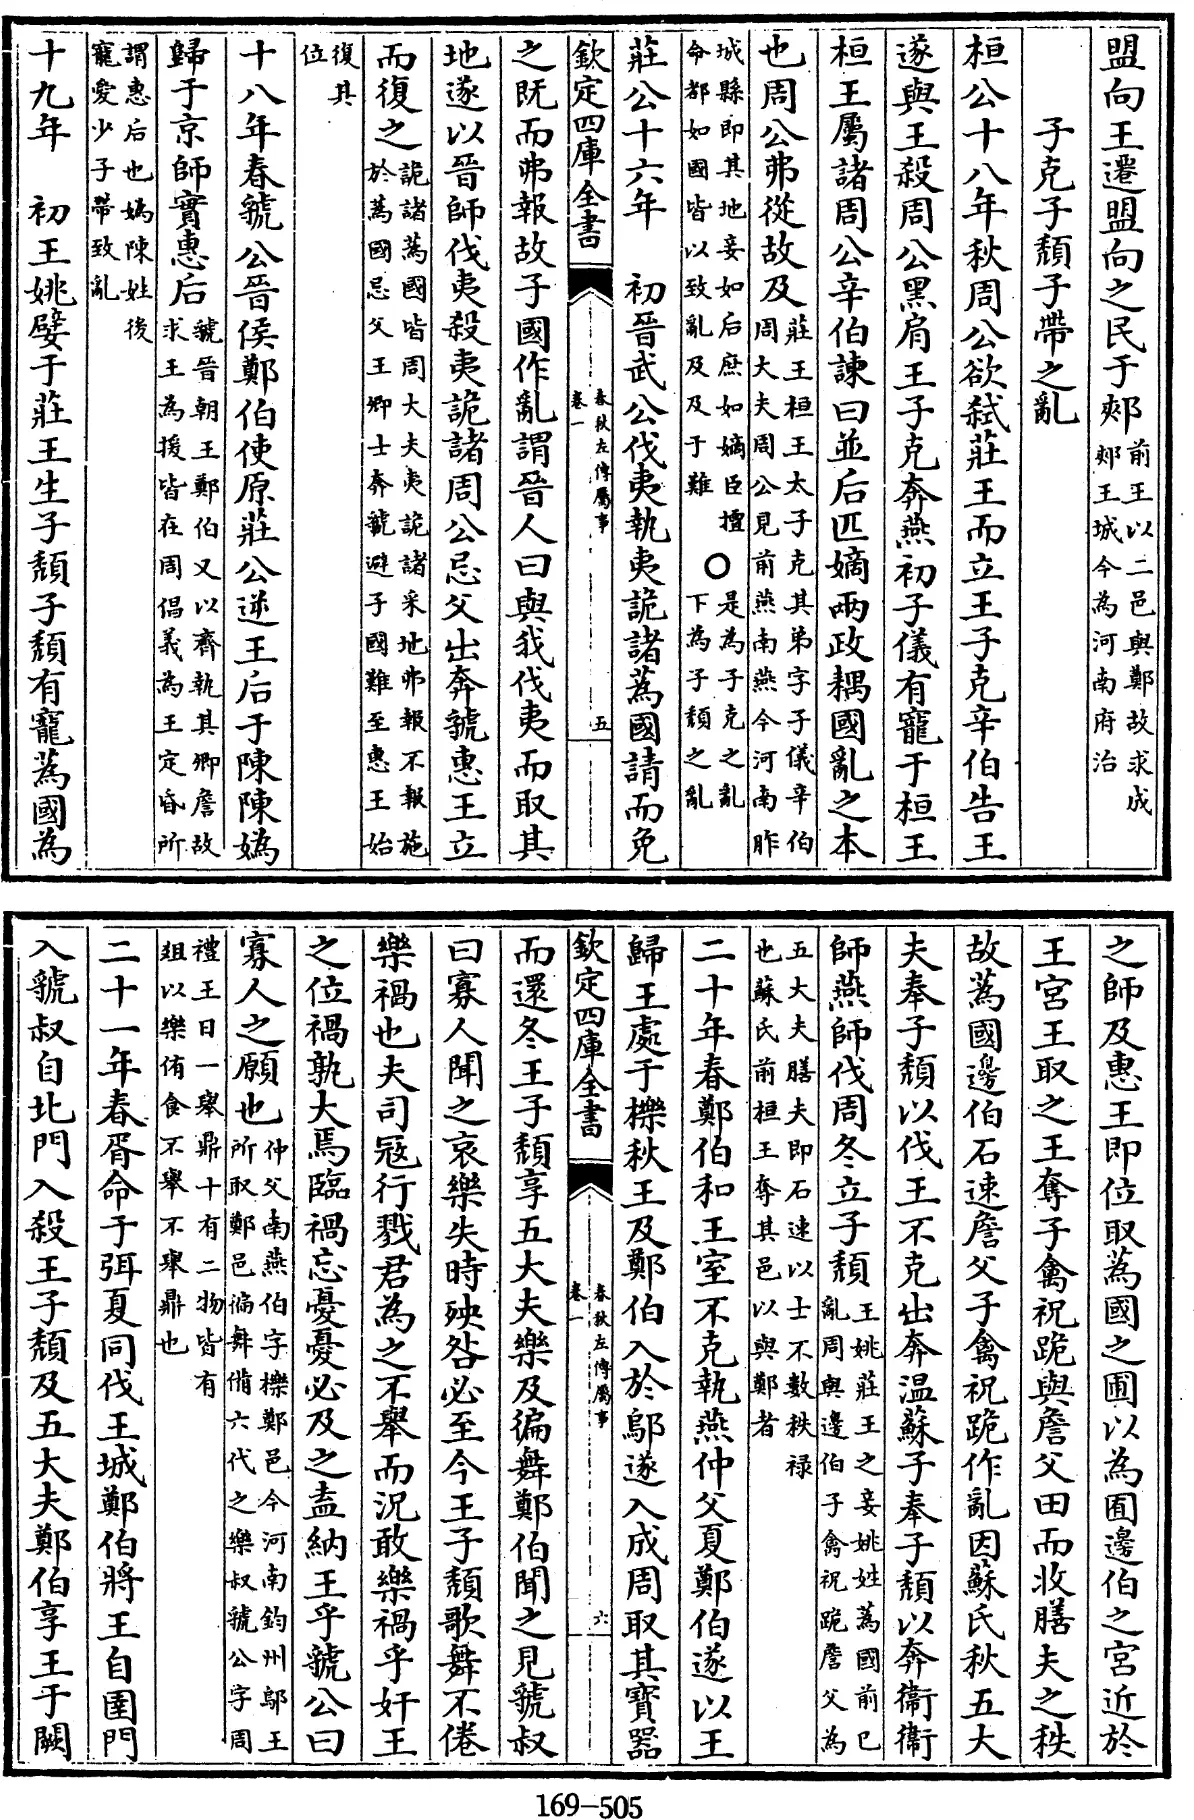 盟向王遷盟向之民于郟前王以二邑與鄭故求成郟王城今為河南府治
子克子頹子帶之亂
桓公十八年秋周公欲弑莊王而立王子克辛伯告王
遂與王殺周公黑肩王子克奔燕初子儀有寵于桓王
桓王屬諸周公辛伯諫曰並后匹嫡兩政耦國亂之本
也周公弗從故及莊王桓王太子克其弟字子儀辛伯周大夫周公見前燕南燕今河南胙
城縣即其地妾如后庶如嫡臣擅命都如國皆以致亂及及于難○是為子克之亂下為子頹之亂
莊公十六年 初晉武公伐夷執夷詭諸蒍國請而免
欽定四庫全書 春秋左傳屬事 卷一 五
之既而弗報故子國作亂謂晉人曰與我伐夷而取其
地遂以晉師伐夷殺夷詭諸周公忌父出奔虢惠王立
而復之詭諸蒍國皆周大夫夷詭諸采地弗報不報施於蒍國忌父王卿士奔虢避子國難至惠王始
復其位
十八年春虢公晉侯鄭伯使原莊公逆王后于陳陳媯
歸于京師實惠后虢晉朝王鄭伯又以齊執其卿詹故求王為援皆在周倡義為王定昏所
謂惠后也媯陳姓後寵愛少子帶致亂
十九年 初王姚嬖于莊王生子頹子頹有寵蒍國為
之師及惠王即位取蒍國之圃以為囿邊伯之宮近於
王宮王取之王奪子禽祝跪與詹父田而收膳夫之秩
故蒍國邊伯石速詹父子禽祝跪作亂因蘇氏秋五大
夫奉子頹以伐王不克出奔温蘇子奉子頹以奔衛衛
師燕師伐周冬立子頹王姚莊王之妾姚姓蒍國前已亂周與邊伯子禽祝跪詹父為
五大夫膳夫即石速以士不數秩禄也蘇氏前桓王奪其邑以與鄭者
二十年春鄭伯和王室不克執燕仲父夏鄭伯遂以王
歸王處于櫟秋王及鄭伯入於鄔遂入成周取其寶器
欽定四庫全書 春秋左傳屬事 卷一 六
而還冬王子頹享五大夫樂及徧舞鄭伯聞之見虢叔
曰寡人聞之哀樂失時殃咎必至今王子頹歌舞不倦
樂禍也夫司寇行戮君為之不舉而況敢樂禍乎奸王
之位禍孰大焉臨禍忘憂憂必及之盍納王乎虢公曰
寡人之願也仲父南燕伯字櫟鄭邑今河南鈞州鄔王所取鄭邑徧舞備六代之樂叔虢公字周
禮王日一舉鼎十有二物皆有俎以樂侑食不舉不舉鼎也
二十一年春胥命于弭夏同伐王城鄭伯將王自圉門
入虢叔自北門入殺王子頹及五大夫鄭伯享王于闕
169-505